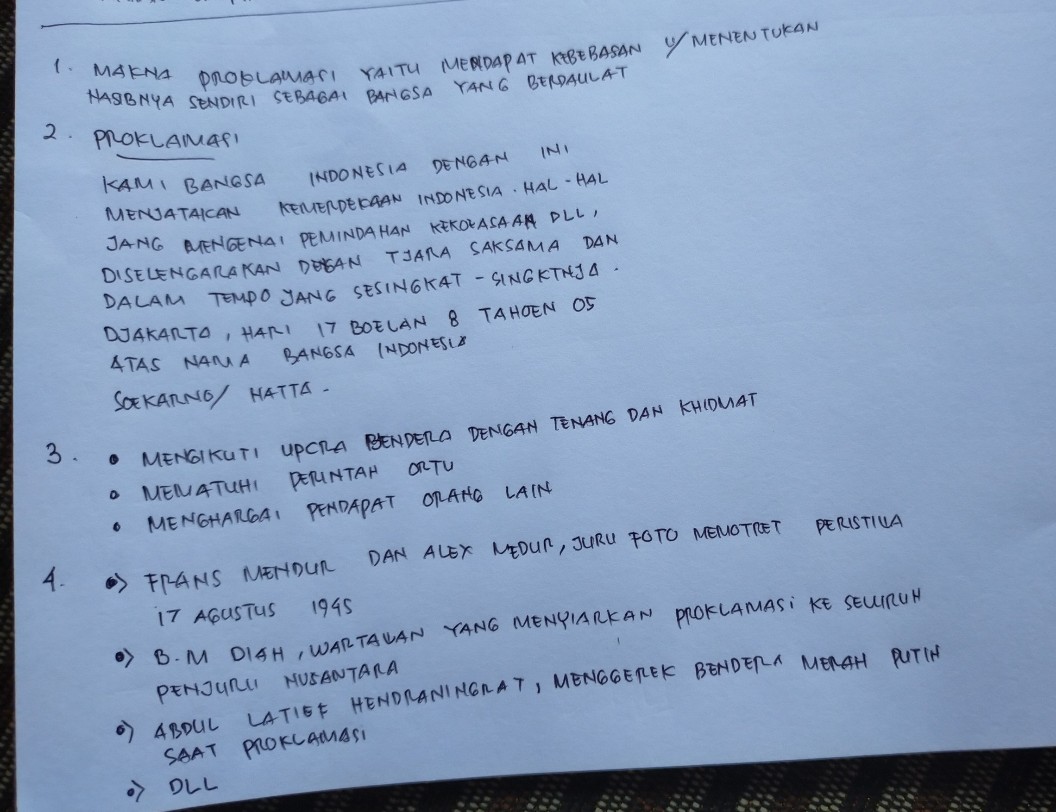 1. MAKNA PROKLAMASI YAITU MENDAPAT KEBEBASAN U/ MENENTUKAN
NASIBNYA SENDIRI SEBAGAI BANGSA YANG BERDAULAT
2. PROKLAMASI
KAMI BANGSA INDONESIA DENGAN INI
MENJATAKAN KEMERDEKAAN INDONESIA. HAL-HAL
JANG MENGENAI PEMINDAHAN KEKOEASAAN DLL,
DISELENGARAKAN DENGAN TJARA SAKSAMA DAN
DALAM TEMPO JANG SESINGKAT-SINGKTNJA.
DJAKARTA, HARI 17 BOELAN 8 TAHOEN 05
ATAS NAMA BANGSA INDONESIA
SOEKARNO/ HATTA-
3. • MENGIKUTI UPCRA BENDERA DENGAN TENANG DAN KHIDMAT
• MEMATUHI PERINTAH ORTU
• MENGHARGAI PENDAPAT ORANG LAIN
4. •> FRANS MENDUR DAN ALEX MEDUR, JURU FOTO MEMOTRET
17 AGUSTUS 1945
•> B.M DIAH, WARTAWAN YANG MENYIARKAN PROKLAMASI KE SELURUH
PENJURU NUSANTARA
•> ABDUL LATIEF HENDRANINGRAT, MENGGEREK BENDERA MERAH PUTIH
SAAT PROKLAMASI
•> DLL